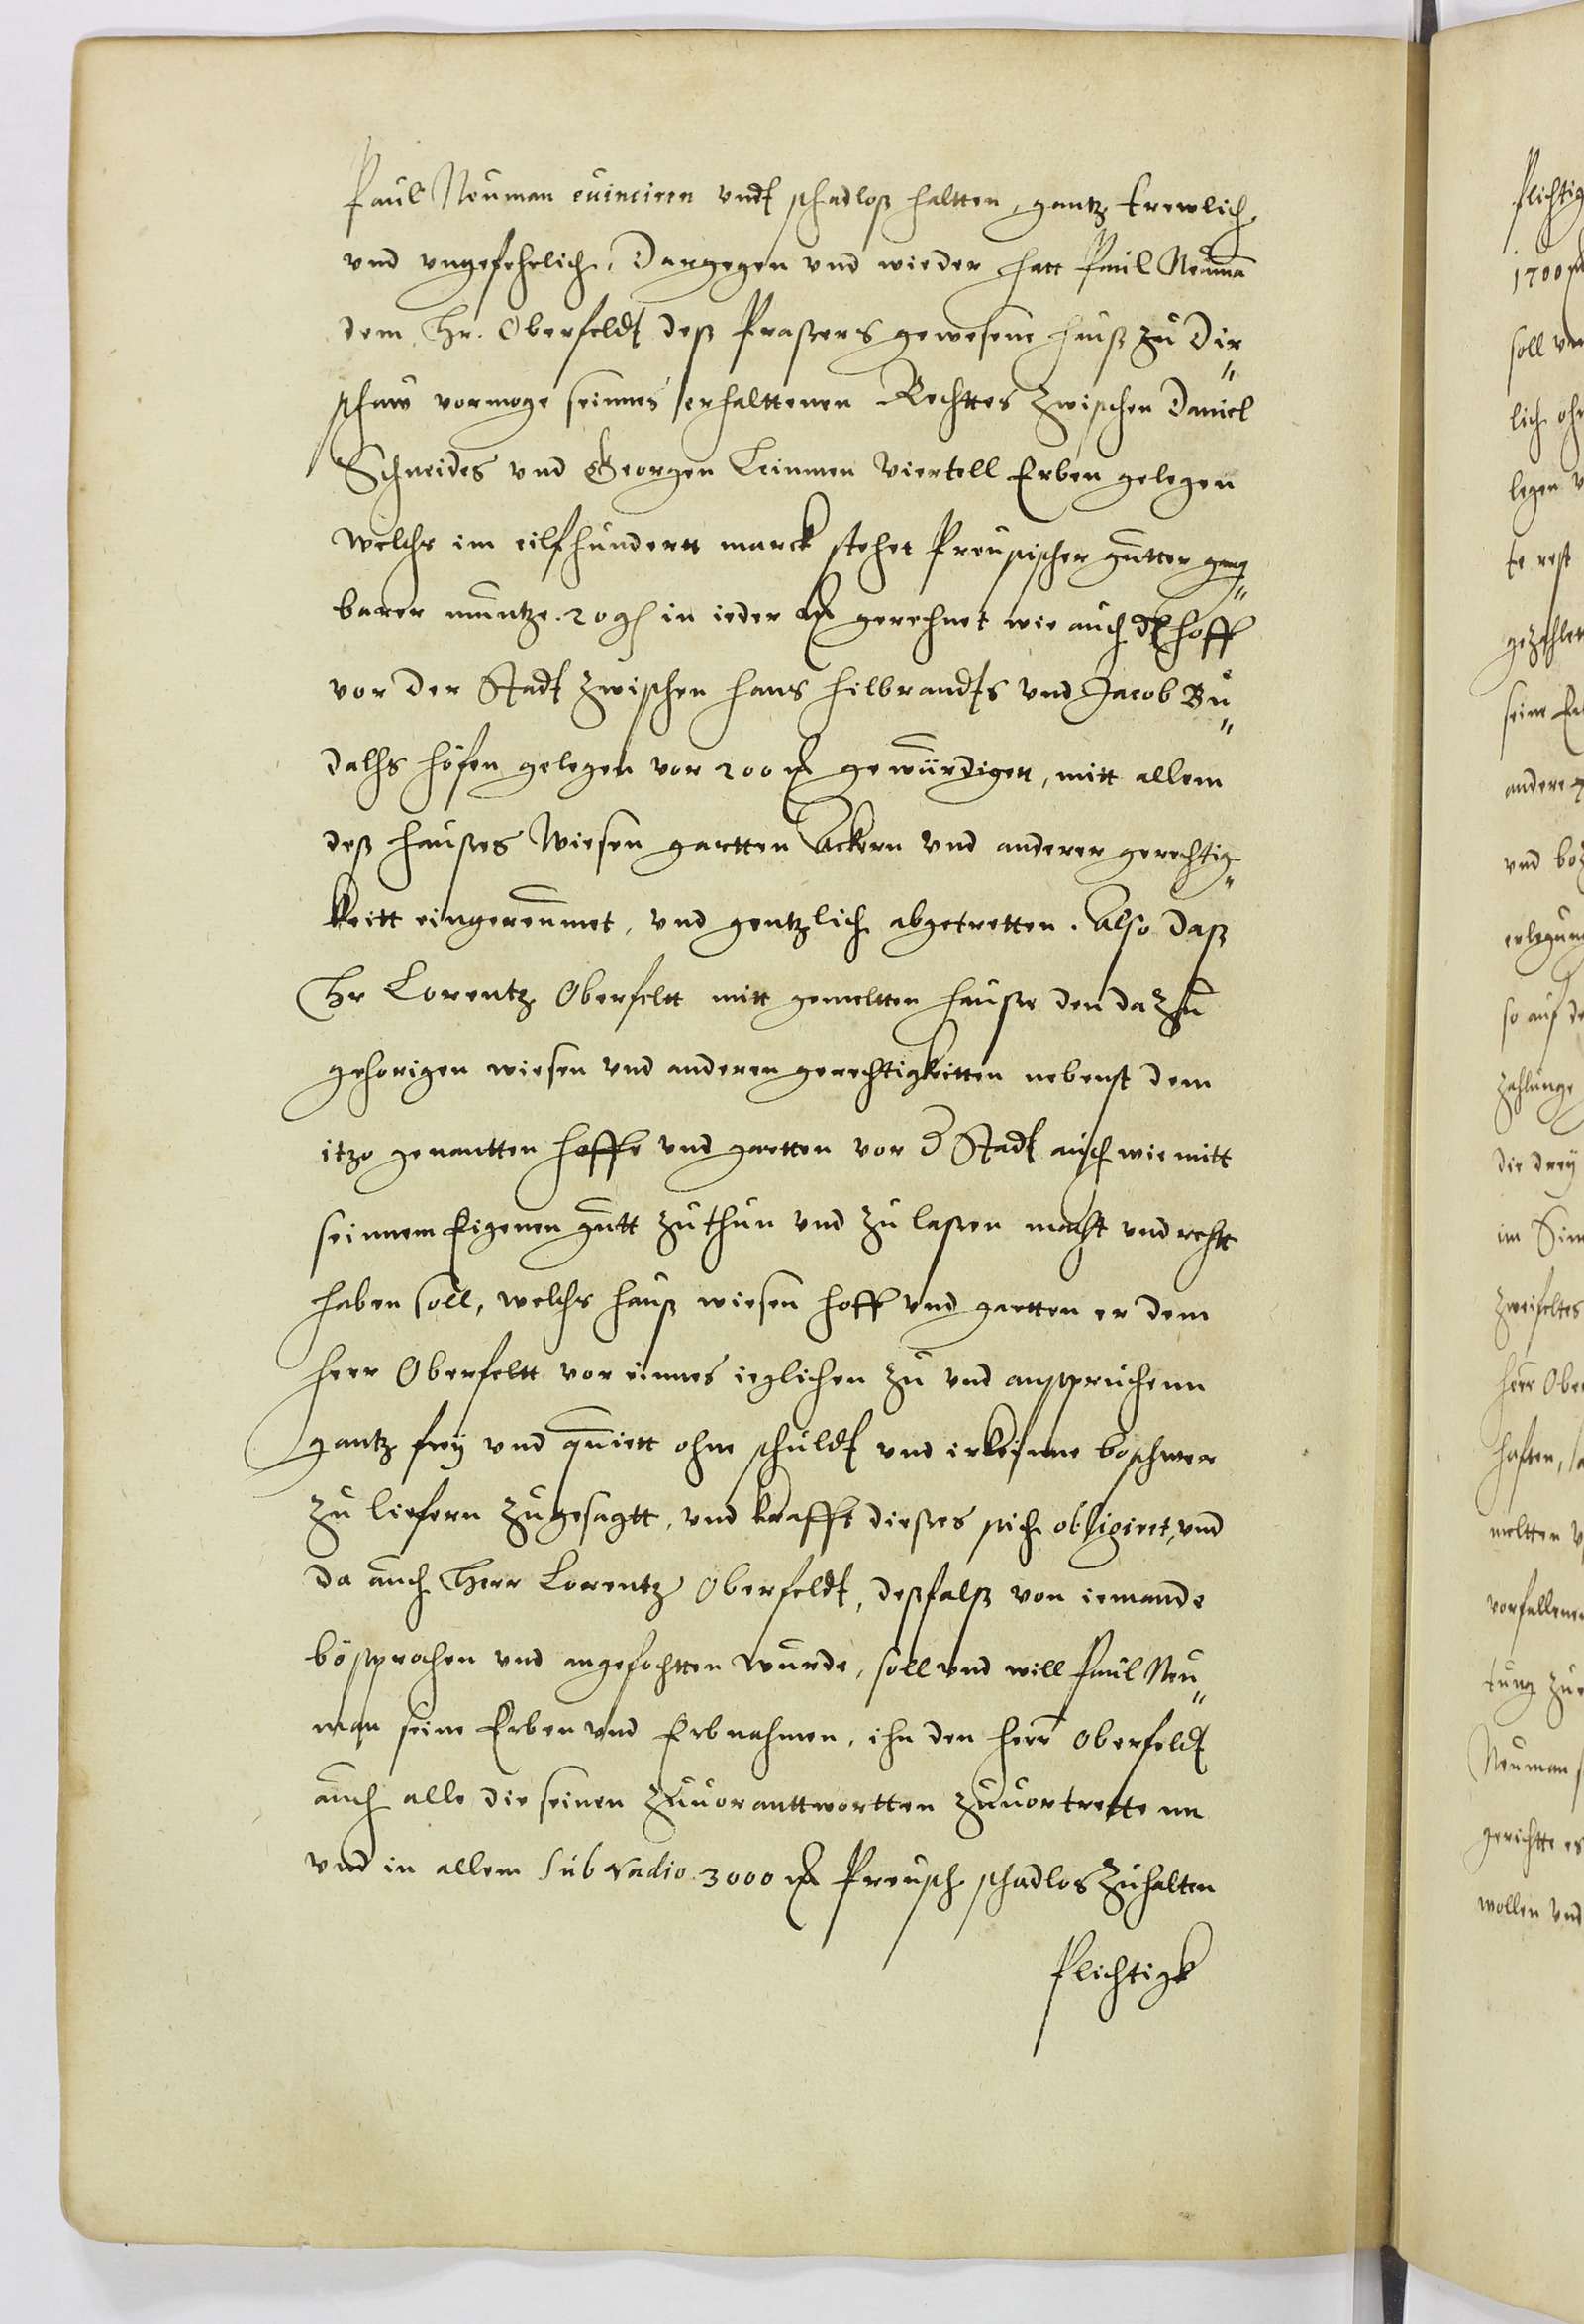 Paul Neuman euinciren undt schadloß haltten, gantz trewlich
vnd vngefehrlich, Dargegen vnd wieder hatt Paul Neuma
dem Hr. Oberfeldt deß Praßers gewesene hauß zu Dir„
schaw vermoge seinnes erhalttenen Rechttes zwischen Daniel
Schneides vnd Georgen Leinmen Viertell Erben gelegen
welchs im eilfhundertt marck stehet Preusischer gutter gang„
barer muntze. 20 gl in ieder m gerechnet wie auch d hoff
vor der Stadt zwischen Hans Hilbrandts vnd Jacob Bu„
dachs höfen gelegen vor 200 m gewürdigett, mitt allem
deß haußes Wiesen gartten Ackern vnd anderer gerechtig„
keitt eingereumet, vnd gentzlich abgetretten. Also daß
Hr Lorentz Oberfeltt mitt gemeltten hauße den da zu
gehorigen wiesen vnd anderen gerechtigkeitten nebenst dem
itzo genantten hoffe vnd gartten vor d Stadt auch wie mitt
seinnem Eigenen gutt zu thun vnd zu laßen macht vnd rechtt
haben soll, welchs hauß wiesen hoff vnd gartten er dem
Herr Oberfeltt vor einnes ieglichen zu vnd anspruchenn
gantz frey vnd quiett ohne schuldt vnd irkeinne beschwer
zu liefern zugesagtt, vnd krafft dießes sich obligiret, vnd
da auch Herr Lorentz Oberfeldt, deßfalß von iemande
besprochen vnd angefochtten wurde, soll vnd will Paul Neu„
man seine Erben vnd Erbnahmen, ihn den Herr Oberfeldt
auch alle die seinen zuuoranttwortten zuuortrettenn
vnd in allem sub vadio 3000 m Preusch schadlos zuhalten
Plichtigk